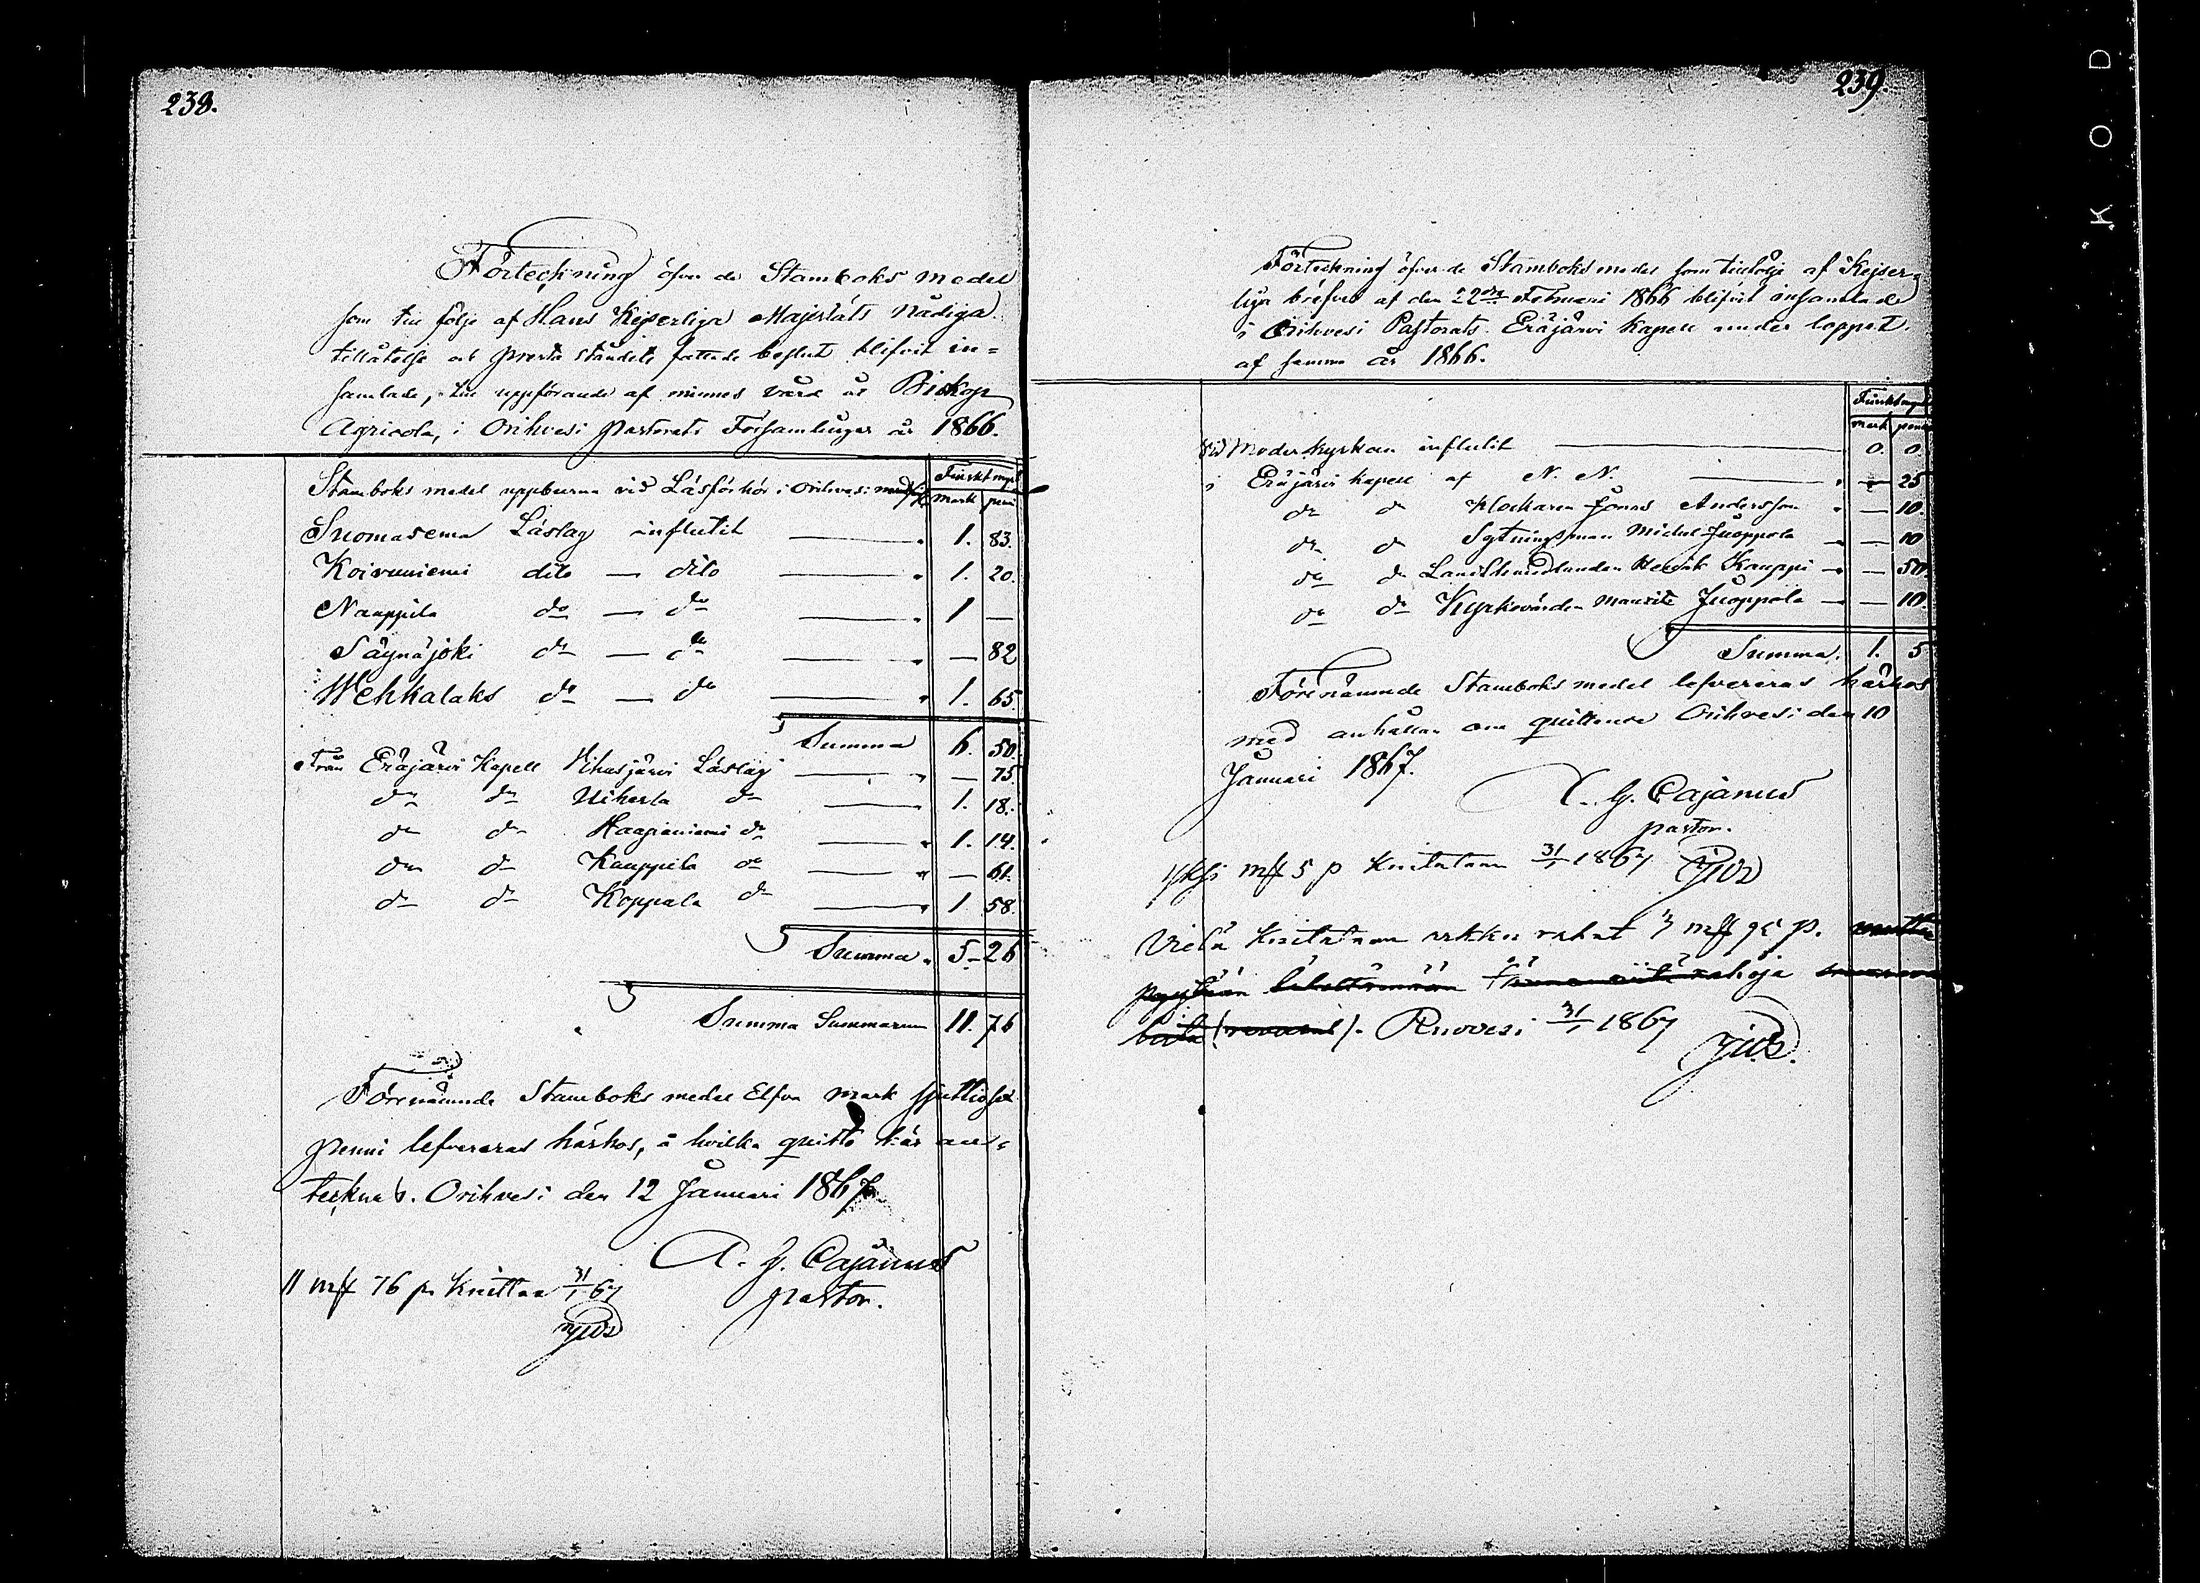 238.
Förteckning öfver de Stamboks medel
som till följe af Hans Kejserliga Majestäts Nådiga
tillåtelse och Preste ståndets fattade beslut blifvit in=
samlade, till uppförande af minnes vård åt Biskop
Agricola, i Orihvesi pastorats Församlingar år 1866.
Finskt mynt
mark penni
Stamboks medel uppburna vid Läsförhör i Orihvesi
Suomasema Läslag influtit 1. 83.
Koivuniemi dito — dito 1. 20.
Naappila do — do 1 —
Säynäjoki do — do — 82
Wehkalaks do — do 1. 65.
Summa 6. 50
Från Eräjärvi Kapell Vihasjärvi Läslag — 75
do do Uiherla do 1. 18.
do do Haapaniemi do 1. 14.
do do Kauppila do — 61.
do do Koppala do 1 58.
Summa 5-26
Summa Summarum 11. 76
Förenämnde Stamboks medel Elfva mark sjuttiosex
penni lefvereras härhos, å hvilka quitto här an=
tecknas. Orihvesi den 12 Januari 1867
A. G. Cajanus
pastor.
11 mk 76 p. kvittaa 31/1 67
YWJ
239.
Förteckning öfver de Stamboks medel som till följe af Kejser=
liga brefvet af den 22dra Februari 1866 blifvit insamlade
i Orihvesi Pastorats Eräjärvi Kapell under loppet
af samma år 1866.
Finskt mynt
mark penni
Vid Moderkyrkan influtit 0. 0.
i Eräjärvi kapell af N. N. — 25
do do Klockaren Jonas Andersson — 10.
do do Sextingsman Michel Juoppola — 10
do do Landbonden Henrik Kauppi — 50.
do do Kyrkovärden Maurits Juoppola — 10.
Summa. 1. 5
Förenämnde Stamboks medel lefvereras härhos
med anhållan om quittence Orihvesi den 10
Januari 1867.
A. G. Cajanus
pastor.
Yksi mk 5 p kuitataan 31/1 1867 YWJ
Vielä kuitataan rahat 3 mk 95 p.
Ruovesi 31/1 1867
YWJ.
KOD